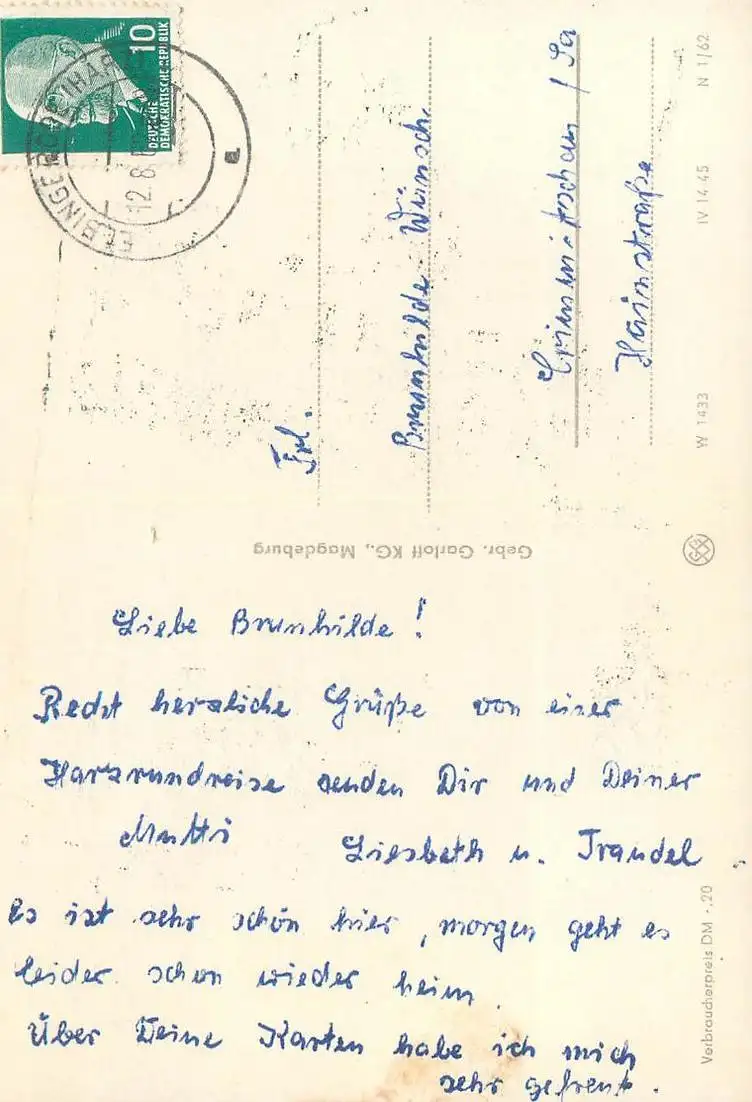 10
DEUTSCHE
DEMOKRATISCHE REPUBLIK
ELBINGERODE (HARZ)
12.8.6
a
Frl.
Brunhilde Wünsch
Crimmitschau / Sa
Hainstraße
W 1433 IV 14 45 N 1/62
Gebr. Garloff KG., Magdeburg
Liebe Brunhilde!
Recht herzliche Grüße von einer
Harzrundreise senden Dir und Deiner
Mutti Liesbeth u. Traudel
Es ist sehr schön hier, morgen geht es
leider schon wieder heim.
Über Deine Karten habe ich mich
sehr gefreut.
Verbraucherpreis DM -.20